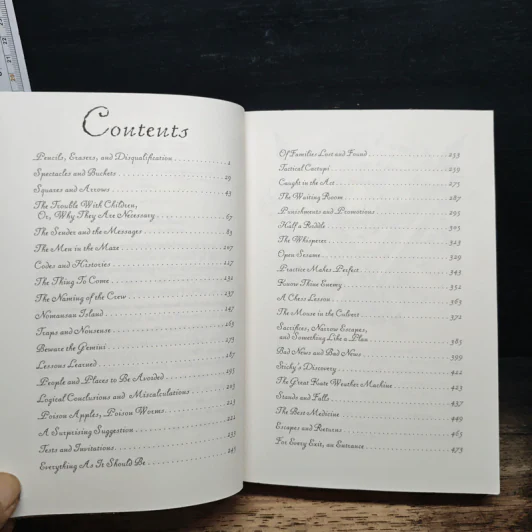 Contents
Pencils, Erasers, and Disqualification 1
Spectacles and Buckets 29
Squares and Arrows 43
The Trouble With Children,
Or, Why They Are Necessary 67
The Sender and the Messages 83
The Men in the Maze 107
Codes and Histories 117
The Thing To Come 131
The Naming of the Crew 137
Nomansan Island 147
Traps and Nonsense 163
Beware the Gemini 173
Lessons Learned 187
People and Places to Be Avoided 195
Logical Conclusions and Miscalculations 213
Poison Apples, Poison Worms 221
A Surprising Suggestion 233
Tests and Invitations
Everything As It Should Be 245
Of Families Lost and Found 253
Tactical Cactupi 259
Caught in the Act 275
The Waiting Room 287
Punishments and Promotions 295
Half a Riddle 303
The Whisperer 313
Open Sesame 329
Practice Makes Perfect 343
Know Thine Enemy 351
A Chess Lesson 363
The Mouse in the Culvert 372
Sacrifices, Narrow Escapes,
and Something Like a Plan 383
Bad News and Bad News 399
Sticky's Discovery 411
The Great Kate Weather Machine 423
Stands and Falls 437
The Best Medicine 449
Escapes and Returns 463
For Every Exit, an Entrance 473